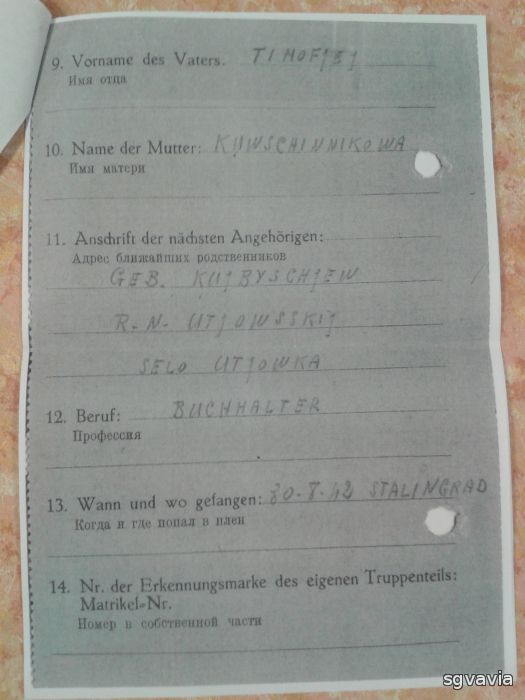 9. Vorname des Vaters. TIMOFJEJ
Имя отца
10. Name der Mutter: KUWSCHINNIKOWA
Имя матери
11. Anschrift der nächsten Angehörigen:
Адрес ближайших родственников
GEB. KUJBYSCHJEW
R.-N. UTJOWSSKIJ
SELO UTJOWKA
12. Beruf: BUCHHALTER
Профессия
13. Wann und wo gefangen: 30.8.42 STALINGRAD
Когда и где попал в плен
14. Nr. der Erkennungsmarke des eigenen Truppenteils:
Matrikel-Nr.
Номер в собственной части
sgvavia